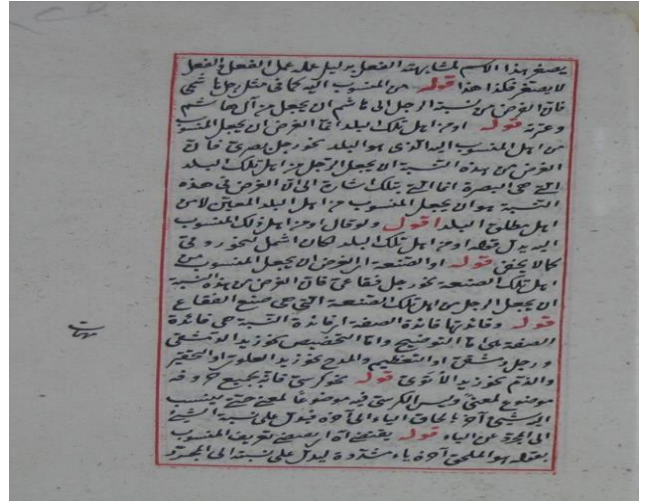 يصغر هذا الاسم لمشابهته الفعل بدليل عمله عمل الفعل والفعل
لا يصغر فكذا هذا قوله من المنسوب اليه كما فى مثل رجل هاشمى
فان الغرض من نسبة الرجل الى هاشم ان يجعل من آل هاشم
وعترته قوله او من اهل تلك البلد اى الغرض ان يجعل المنسوب
من اهل المنسوب اليه الذى هو البلد نحو رجل بصرى فان
الغرض من هذه النسبة ان يجعل الرجل من اهل تلك البلد
التى هى البصرة انما اتى بتلك اشارة الى ان الغرض فى هذه
النسبة هو ان يجعل المنسوب من اهل البلد المعين لا من
اهل مطلق البلد اقول ولو قال او من اهل ذلك المنسوب
اليه بدل قوله او من اهل تلك البلد لكان اشمل
كما لا يخفى قوله او الصنعة اى الغرض ان يجعل المنسوب من
اهل تلك الصنعة نحو رجل فقاعى فان الغرض من هذه النسبة
ان يجعل الرجل من اهل تلك الصنعة التى هى صنع الفقاع
قوله وفائدتها فائدة الصفة اى فائدة النسبة هى فائدة
الصفة هى اما التوضيح واما التخصيص نحو زيد الدمشقى
ورجل دمشقى او التعظيم والمدح نحو زيد العلوى او التحقير
والذم نحو زيد قوله نحو كرسى فانه بجميع حروفه
موضوع لمعنى وليس الكرسى فيه موضوعا لمعنى حتى ينسب
اليه شيئ آخر بالحاق الياء الى آخره فيدل على نسبة الشيئ
الى المجرد عن الياء قوله يقتضى تعريف المنسوب
بقوله هو الملحق آخره ياء مشددة ليدل على نسبته الى المجرد